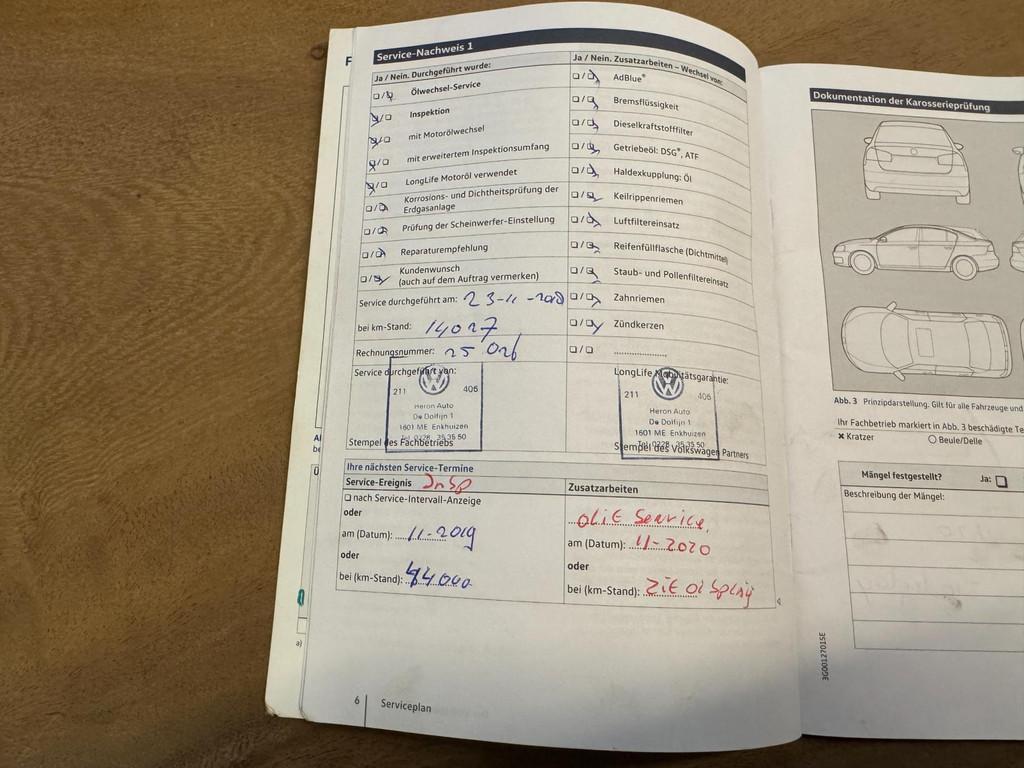 Service-Nachweis 1
Ja / Nein. Durchgeführt wurde:
Ölwechsel-Service
Inspektion
mit Motorölwechsel
mit erweitertem Inspektionsumfang
LongLife Motoröl verwendet
Korrosions- und Dichtheitsprüfung der
Erdgasanlage
Prüfung der Scheinwerfer-Einstellung
Reparaturempfehlung
Kundenwunsch
(auch auf dem Auftrag vermerken)
Service durchgeführt am: 23-11-2018
bei km-Stand: 14027
Rechnungsnummer: 25026
Service durchgeführt von:
211 406
Heron Auto
De Dolfijn 1
1601 ME Enkhuizen
Tel. 0228 35 35 50
Stempel des Fachbetriebs
Ja / Nein. Zusatzarbeiten – Wechsel von:
AdBlue®
Bremsflüssigkeit
Dieselkraftstofffilter
Getriebeöl: DSG®, ATF
Haldexkupplung: Öl
Keilrippenriemen
Luftfiltereinsatz
Reifenfüllflasche (Dichtmittel)
Staub- und Pollenfiltereinsatz
Zahnriemen
Zündkerzen
LongLife Mobilitätsgarantie:
211 406
Heron Auto
De Dolfijn 1
1601 ME Enkhuizen
Tel. 0228 35 35 50
Stempel des Volkswagen Partners
Ihre nächsten Service-Termine
Service-Ereignis Insp
nach Service-Intervall-Anzeige
oder
am (Datum): 11-2019
oder
bei (km-Stand): 44000
Zusatzarbeiten
olie Service,
am (Datum): 11-2020
oder
bei (km-Stand): zie displaij
6 Serviceplan
a)
Dokumentation der Karosserieprüfung
Abb. 3 Prinzipdarstellung. Gilt für alle Fahrzeuge und
Ihr Fachbetrieb markiert in Abb. 3 beschädigte Te
Kratzer Beule/Delle
Mängel festgestellt? Ja:
Beschreibung der Mängel:
3G0012701SE